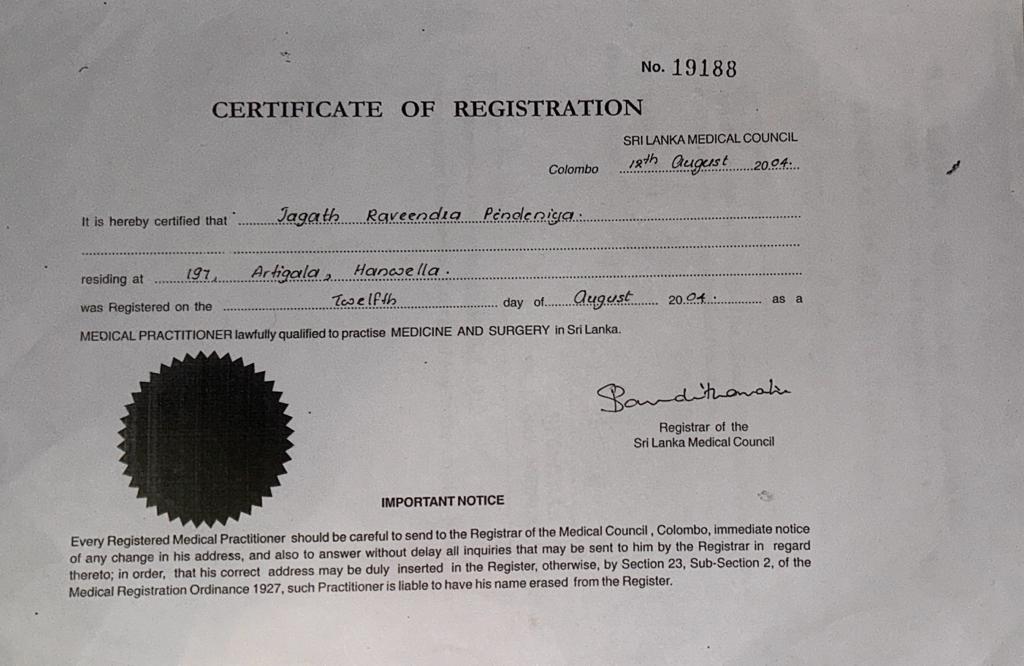 No. 19188
CERTIFICATE OF REGISTRATION
SRI LANKA MEDICAL COUNCIL
Colombo 12th August 2004.
It is hereby certified that Jagath Raveendra Pindeniya.
residing at 197, Artigala, Hanwella.
was Registered on the Twelfth day of August 2004. as a
MEDICAL PRACTITIONER lawfully qualified to practise MEDICINE AND SURGERY in Sri Lanka.
Registrar of the
Sri Lanka Medical Council
IMPORTANT NOTICE
Every Registered Medical Practitioner should be careful to send to the Registrar of the Medical Council , Colombo, immediate notice
of any change in his address, and also to answer without delay all inquiries that may be sent to him by the Registrar in regard
thereto; in order, that his correct address may be duly inserted in the Register, otherwise, by Section 23, Sub-Section 2, of the
Medical Registration Ordinance 1927, such Practitioner is liable to have his name erased from the Register.